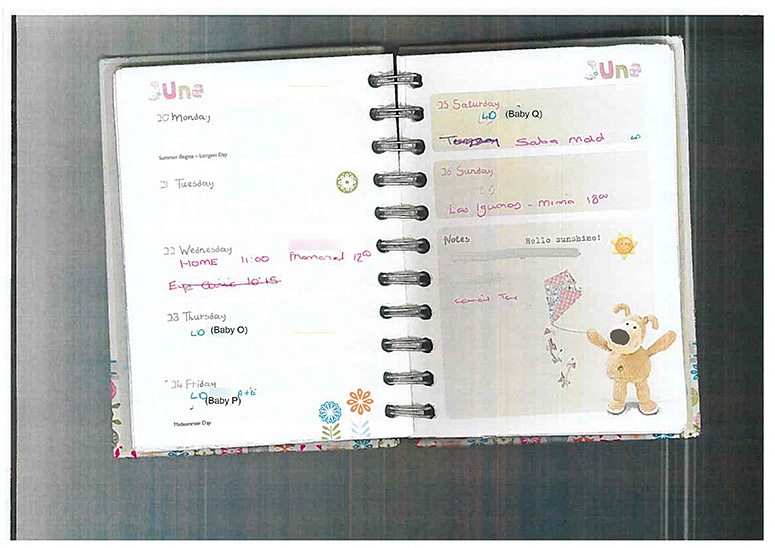 June
20 Monday
Summer Begins – Longest Day
21 Tuesday
22 Wednesday
HOME 11:00 12:00
Eye Clinic 10:15
23 Thursday
LD (Baby O)
24 Friday
LD A+E
(Baby P)
Midsummer Day
June
25 Saturday
LD (Baby Q)
Saba Mold LD
26 Sunday
LD
Las Iguanas - Minna 18:00
Notes Hello sunshine!
Tax